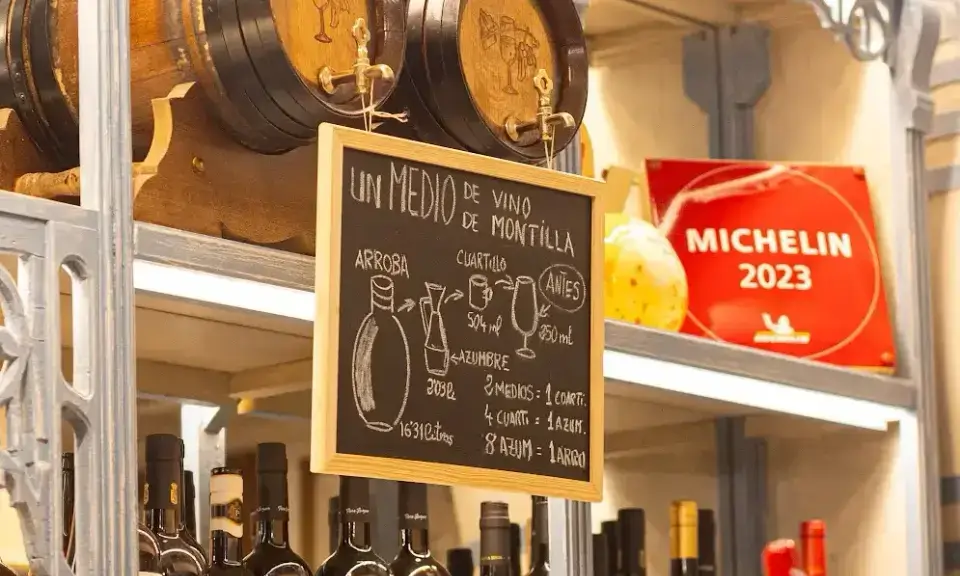 UN MEDIO DE VINO
DE MONTILLA
ARROBA
CUARTILLO
ANTES
504 ml
250 ml
AZUMBRE
2'03 L
16'31 litros
2 MEDIOS = 1 CUARTI.
4 CUARTI = 1 AZUM.
8 AZUM = 1 ARRO
MICHELIN
2023
MICHELIN